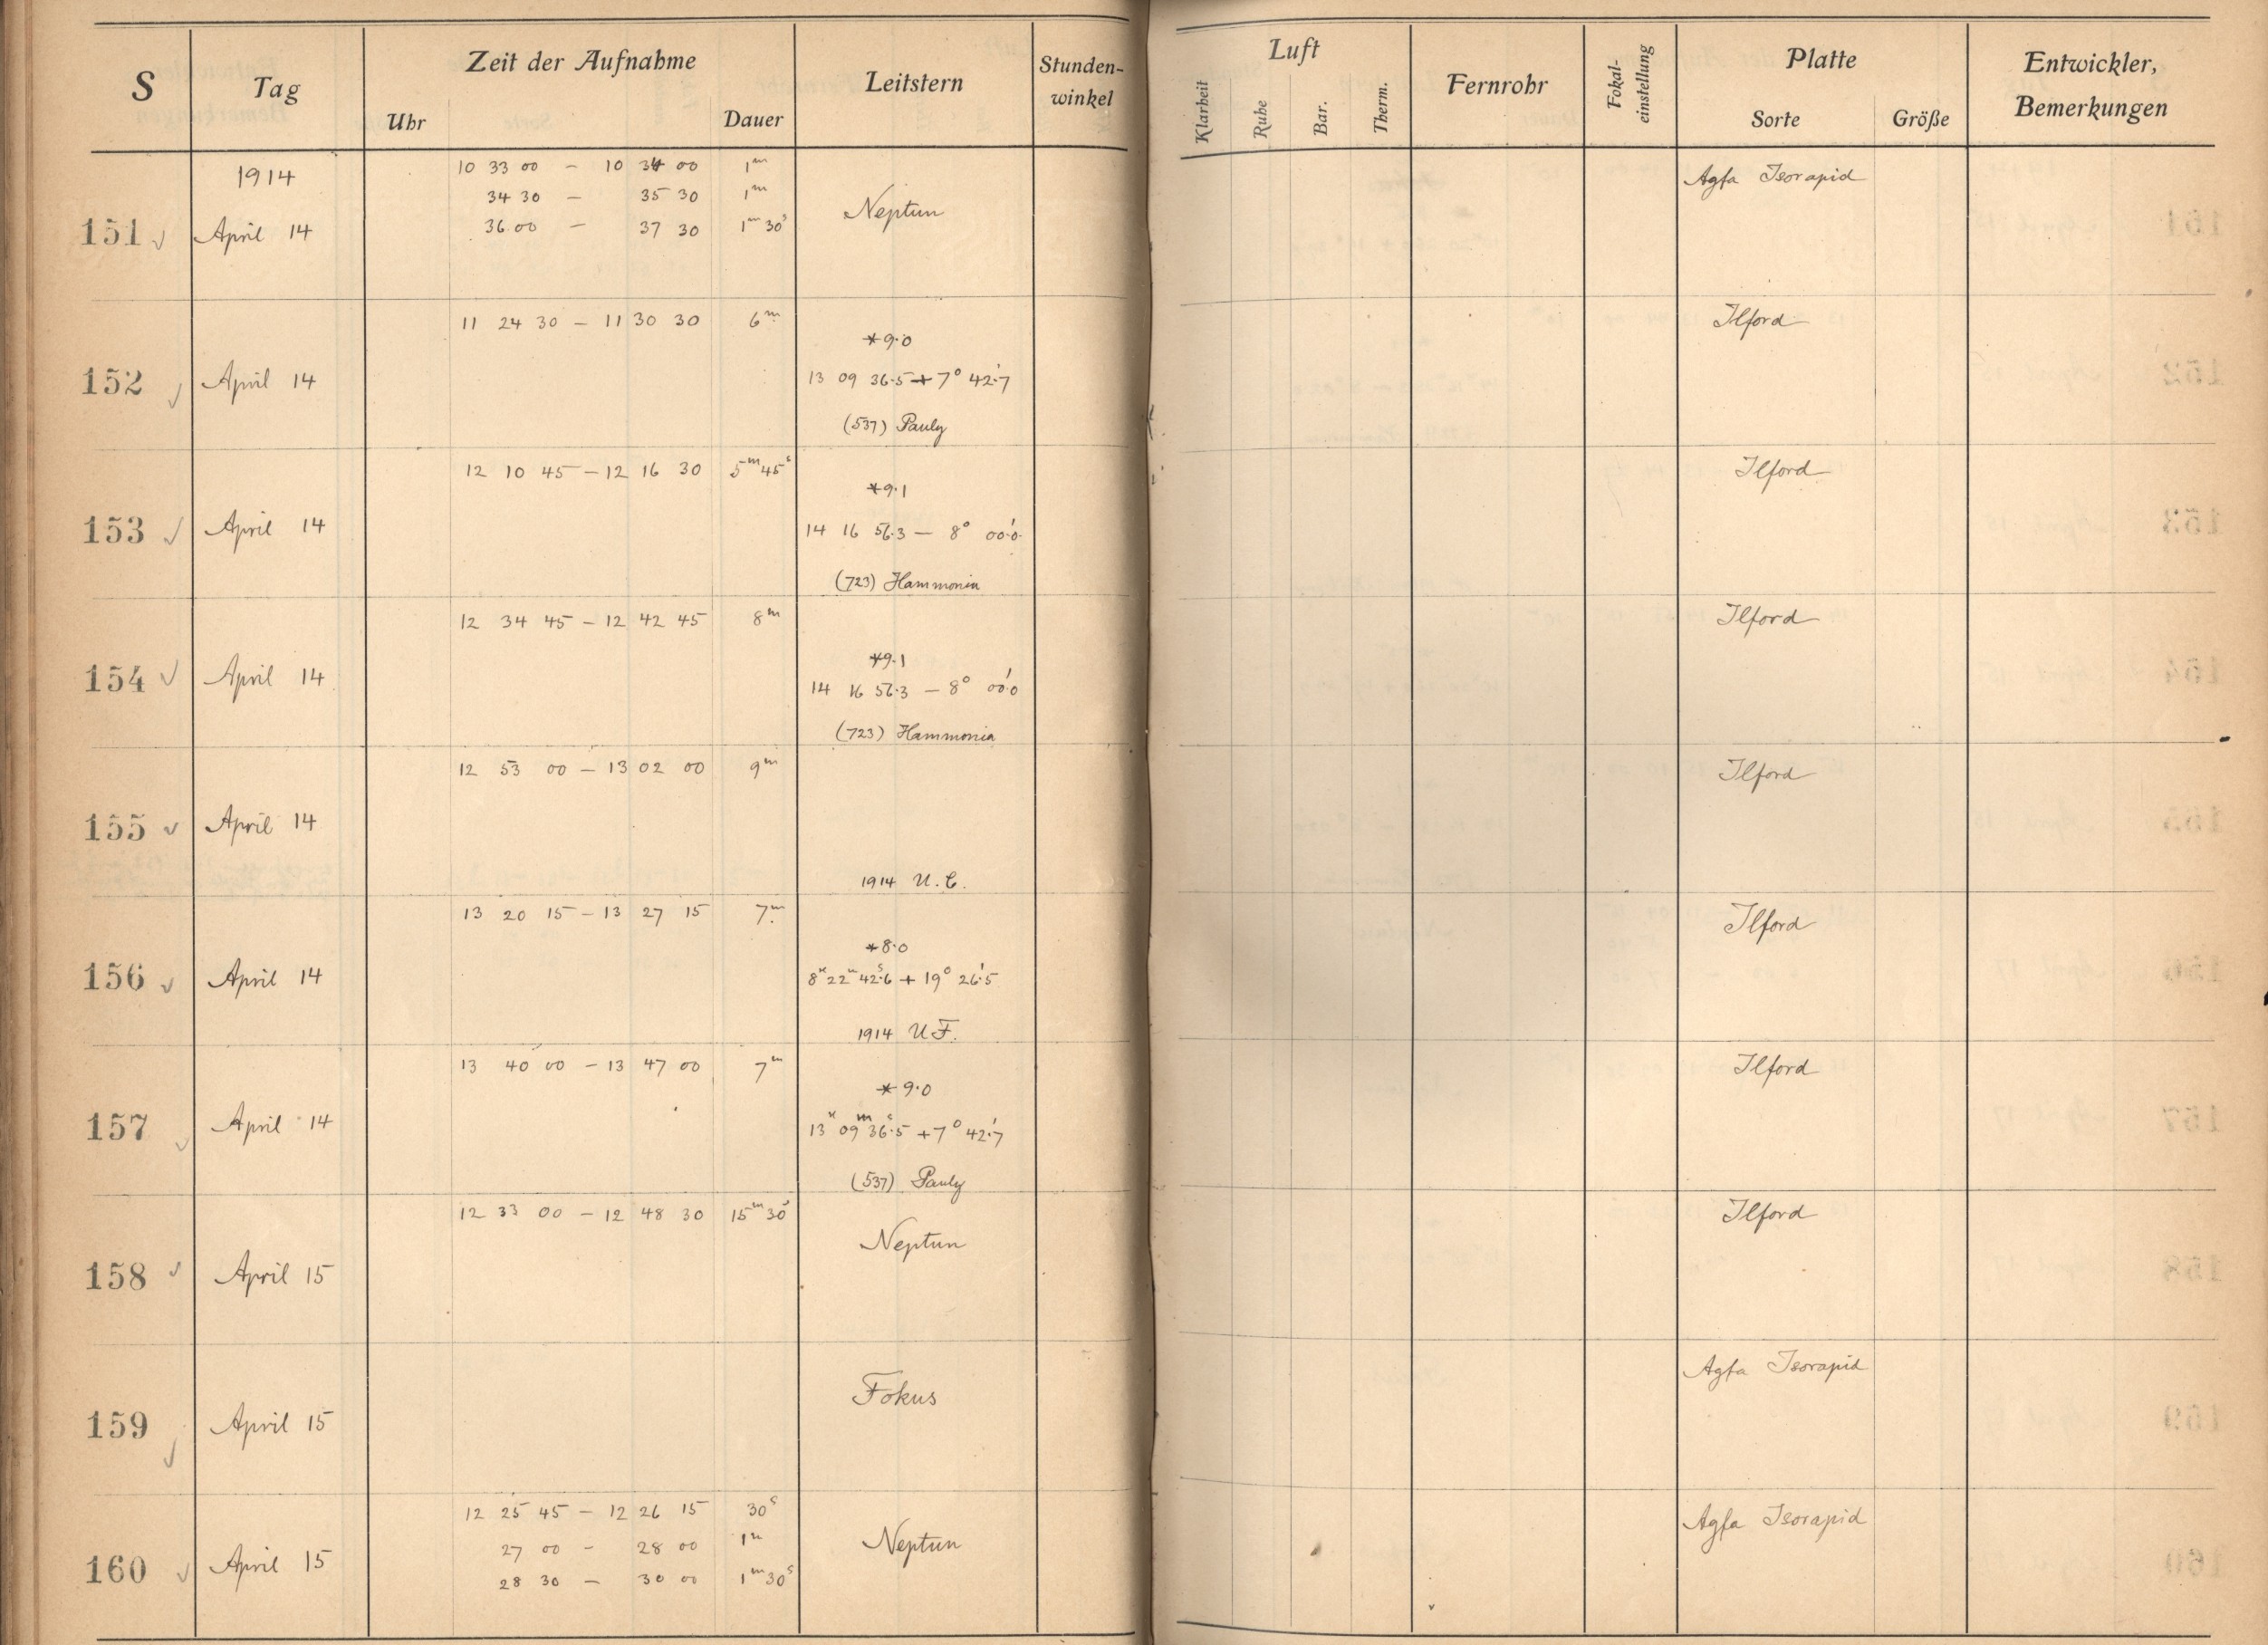 S Tag Zeit der Aufnahme Uhr Dauer Leitstern Stunden-winkel Luft Klarheit Ruhe Bar. Therm. Fernrohr Fokal-einstellung Platte Sorte Größe Entwickler, Bemerkungen
1914 10 33 00 – 10 34 00 1m Agfa Isorapid
34 30 – 35 30 1m
151 April 14 36 00 – 37 30 1m 30s Neptun
11 24 30 – 11 30 30 6m Ilford
*9.0
152 April 14 13 09 36.5 + 7° 42.'7
(537) Pauly
12 10 45 – 12 16 30 5m 45s Ilford
*9.1
153 April 14 14 16 56.3 – 8° 00.'0
(723) Hammonia
12 34 45 – 12 42 45 8m Ilford
*9.1
154 April 14 14 16 56.3 – 8° 00.'0
(723) Hammonia
12 53 00 – 13 02 00 9m Ilford
155 April 14
1914 U.C.
13 20 15 – 13 27 15 7m Ilford
*8.0
156 April 14 8h 22m 42s.6 + 19° 26.'5
1914 UF.
13 40 00 – 13 47 00 7m Ilford
*9.0
157 April 14 13h 09m 36s.5 + 7° 42.'7
(537) Pauly
12 33 00 – 12 48 30 15m 30s Ilford
Neptun
158 April 15
Agfa Isorapid
Fokus
159 April 15
12 25 45 – 12 26 15 30s Agfa Isorapid
27 00 – 28 00 1m Neptun
160 April 15 28 30 – 30 00 1m 30s